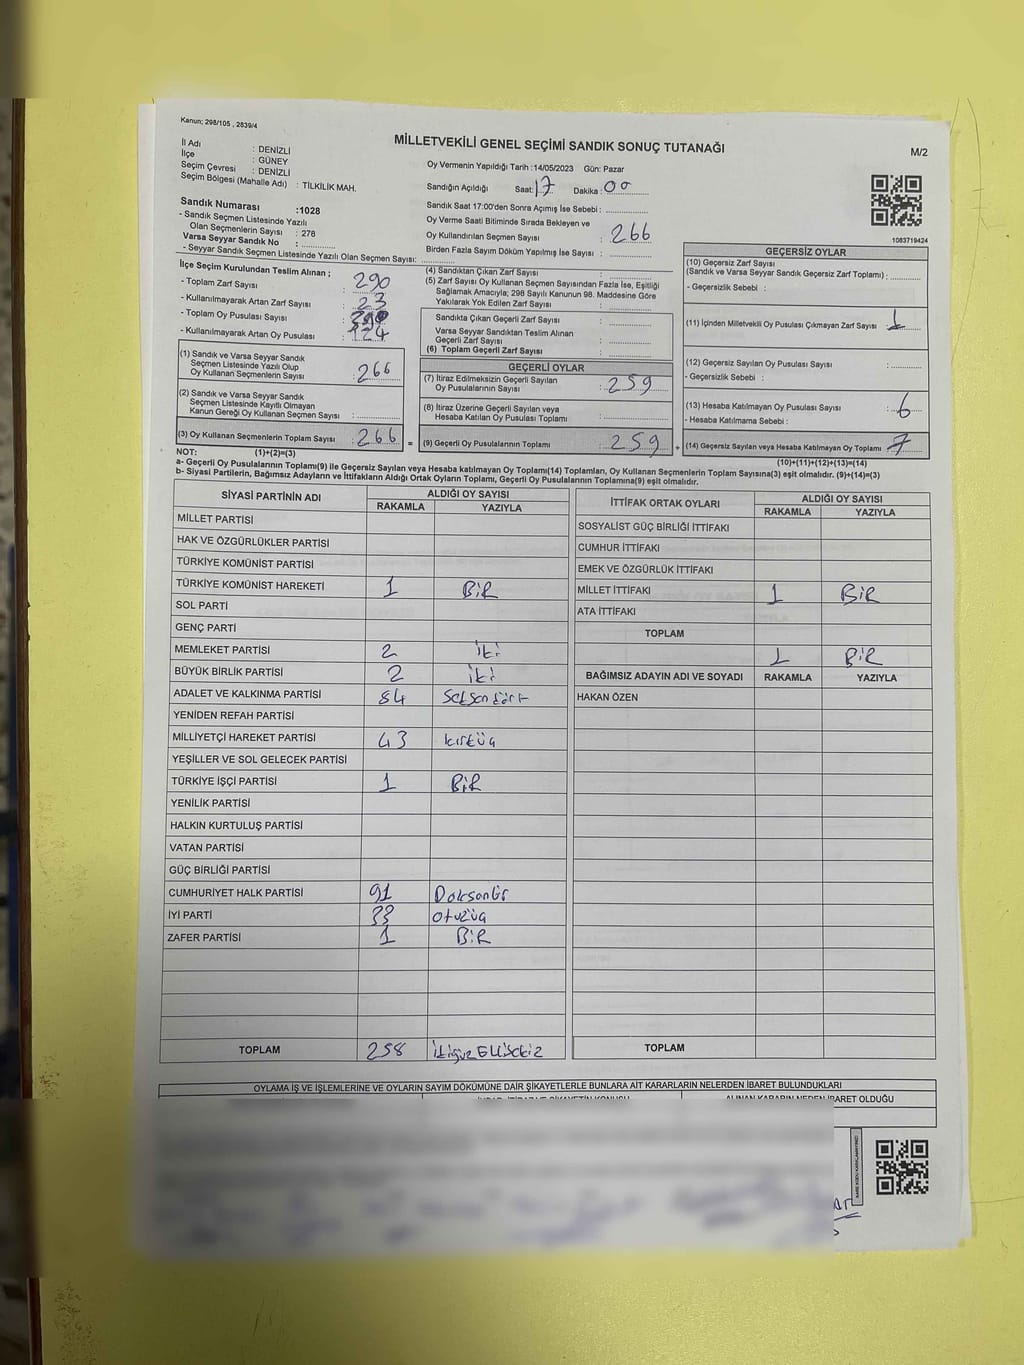 Kanun; 298/105 , 2839/4
MİLLETVEKİLİ GENEL SEÇİMİ SANDIK SONUÇ TUTANAĞI
M/2
İl Adı : DENİZLİ
İlçe : GÜNEY
Seçim Çevresi : DENİZLİ
Seçim Bölgesi (Mahalle Adı) : TİLKİLİK MAH.
Sandık Numarası :1028
- Sandık Seçmen Listesinde Yazılı
Olan Seçmenlerin Sayısı : 278
Varsa Seyyar Sandık No :
- Seyyar Sandık Seçmen Listesinde Yazılı Olan Seçmen Sayısı:
Oy Vermenin Yapıldığı Tarih :14/05/2023 Gün: Pazar
Sandığın Açıldığı Saat: 17 Dakika : 00
Sandık Saat 17:00'den Sonra Açımış İse Sebebi :
Oy Verme Saati Bitiminde Sırada Bekleyen ve
Oy Kullandırılan Seçmen Sayısı : 266
Birden Fazla Sayım Döküm Yapılmış İse Sayısı :
1083719424
İlçe Seçim Kurulundan Teslim Alınan ;
- Toplam Zarf Sayısı : 290
- Kullanılmayarak Artan Zarf Sayısı : 23
- Toplam Oy Pusulası Sayısı :
- Kullanılmayarak Artan Oy Pusulası : 124
(1) Sandık ve Varsa Seyyar Sandık
Seçmen Listesinde Yazılı Olup
Oy Kullanan Seçmenlerin Sayısı : 266
(2) Sandık ve Varsa Seyyar Sandık
Seçmen Listesinde Kayıtlı Olmayan
Kanun Gereği Oy Kullanan Seçmen Sayısı :
(3) Oy Kullanan Seçmenlerin Toplam Sayısı : 266 =
(4) Sandıktan Çıkan Zarf Sayısı :
(5) Zarf Sayısı Oy Kullanan Seçmen Sayısından Fazla İse, Eşitliği
Sağlamak Amacıyla; 298 Sayılı Kanunun 98. Maddesine Göre
Yakılarak Yok Edilen Zarf Sayısı :
Sandıkta Çıkan Geçerli Zarf Sayısı :
Varsa Seyyar Sandıktan Teslim Alınan
Geçerli Zarf Sayısı :
(6) Toplam Geçerli Zarf Sayısı :
GEÇERLİ OYLAR
(7) İtiraz Edilmeksizin Geçerli Sayılan
Oy Pusulalarının Sayısı : 259
(8) İtiraz Üzerine Geçerli Sayılan veya
Hesaba Katılan Oy Pusulası Toplamı :
(9) Geçerli Oy Pusulalarının Toplamı : 259 +
GEÇERSİZ OYLAR
(10) Geçersiz Zarf Sayısı
(Sandık ve Varsa Seyyar Sandık Geçersiz Zarf Toplamı) :
- Geçersizlik Sebebi :
(11) İçinden Milletvekili Oy Pusulası Çıkmayan Zarf Sayısı : 1
(12) Geçersiz Sayılan Oy Pusulası Sayısı :
- Geçersizlik Sebebi :
(13) Hesaba Katılmayan Oy Pusulası Sayısı : 6
- Hesaba Katılmama Sebebi :
(14) Geçersiz Sayılan veya Hesaba Katılmayan Oy Toplamı : 7
NOT: (1)+(2)=(3) (10)+(11)+(12)+(13)=(14)
a- Geçerli Oy Pusulalarının Toplamı(9) ile Geçersiz Sayılan veya Hesaba katılmayan Oy Toplamı(14) Toplamları, Oy Kullanan Seçmenlerin Toplam Sayısına(3) eşit olmalıdır. (9)+(14)=(3)
b- Siyasi Partilerin, Bağımsız Adayların ve İttifakların Aldığı Ortak Oyların Toplamı, Geçerli Oy Pusulalarının Toplamına(9) eşit olmalıdır.
SİYASİ PARTİNİN ADI ALDIĞI OY SAYISI
RAKAMLA YAZIYLA
MİLLET PARTİSİ
HAK VE ÖZGÜRLÜKLER PARTİSİ
TÜRKİYE KOMÜNİST PARTİSİ
TÜRKİYE KOMÜNİST HAREKETİ 1 BİR
SOL PARTİ
GENÇ PARTİ
MEMLEKET PARTİSİ 2 iki
BÜYÜK BİRLİK PARTİSİ 2 iki
ADALET VE KALKINMA PARTİSİ 84 Seksendört
YENİDEN REFAH PARTİSİ
MİLLİYETÇİ HAREKET PARTİSİ 43 kırküç
YEŞİLLER VE SOL GELECEK PARTİSİ
TÜRKİYE İŞÇİ PARTİSİ 1 BİR
YENİLİK PARTİSİ
HALKIN KURTULUŞ PARTİSİ
VATAN PARTİSİ
GÜÇ BİRLİĞİ PARTİSİ
CUMHURİYET HALK PARTİSİ 91 Doksanbir
İYİ PARTİ 33 otuzüç
ZAFER PARTİSİ 1 BİR
TOPLAM 258 ikiyüzEllisekiz
İTTİFAK ORTAK OYLARI ALDIĞI OY SAYISI
RAKAMLA YAZIYLA
SOSYALİST GÜÇ BİRLİĞİ İTTİFAKI
CUMHUR İTTİFAKI
EMEK VE ÖZGÜRLÜK İTTİFAKI
MİLLET İTTİFAKI 1 BİR
ATA İTTİFAKI
TOPLAM
1 BİR
BAĞIMSIZ ADAYIN ADI VE SOYADI RAKAMLA YAZIYLA
HAKAN ÖZEN
TOPLAM
OYLAMA İŞ VE İŞLEMLERİNE VE OYLARIN SAYIM DÖKÜMÜNE DAİR ŞİKAYETLERLE BUNLARA AİT KARARLARIN NELERDEN İBARET BULUNDUKLARI
ALINAN KARARIN NEDEN İBARET OLDUĞU